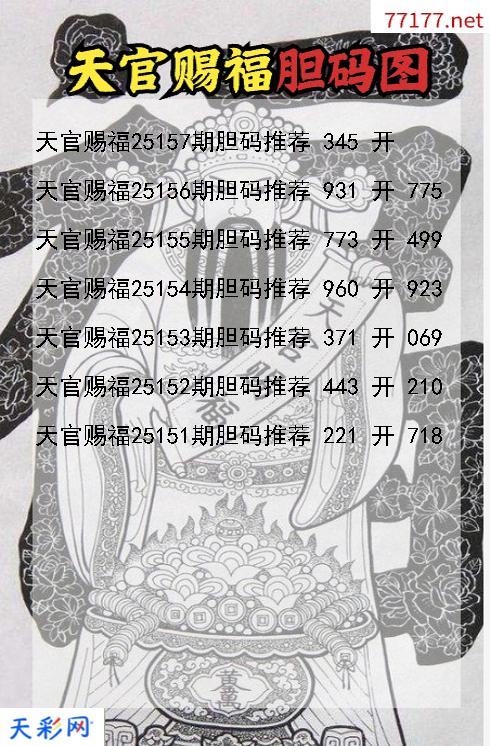 77177.net
天官赐福胆码图
天官赐福25157期胆码推荐 345 开
天官赐福25156期胆码推荐 931 开 775
天官赐福25155期胆码推荐 773 开 499
天官赐福25154期胆码推荐 960 开 923
天官赐福25153期胆码推荐 371 开 069
天官赐福25152期胆码推荐 443 开 210
天官赐福25151期胆码推荐 221 开 718
天官赐福
天彩网